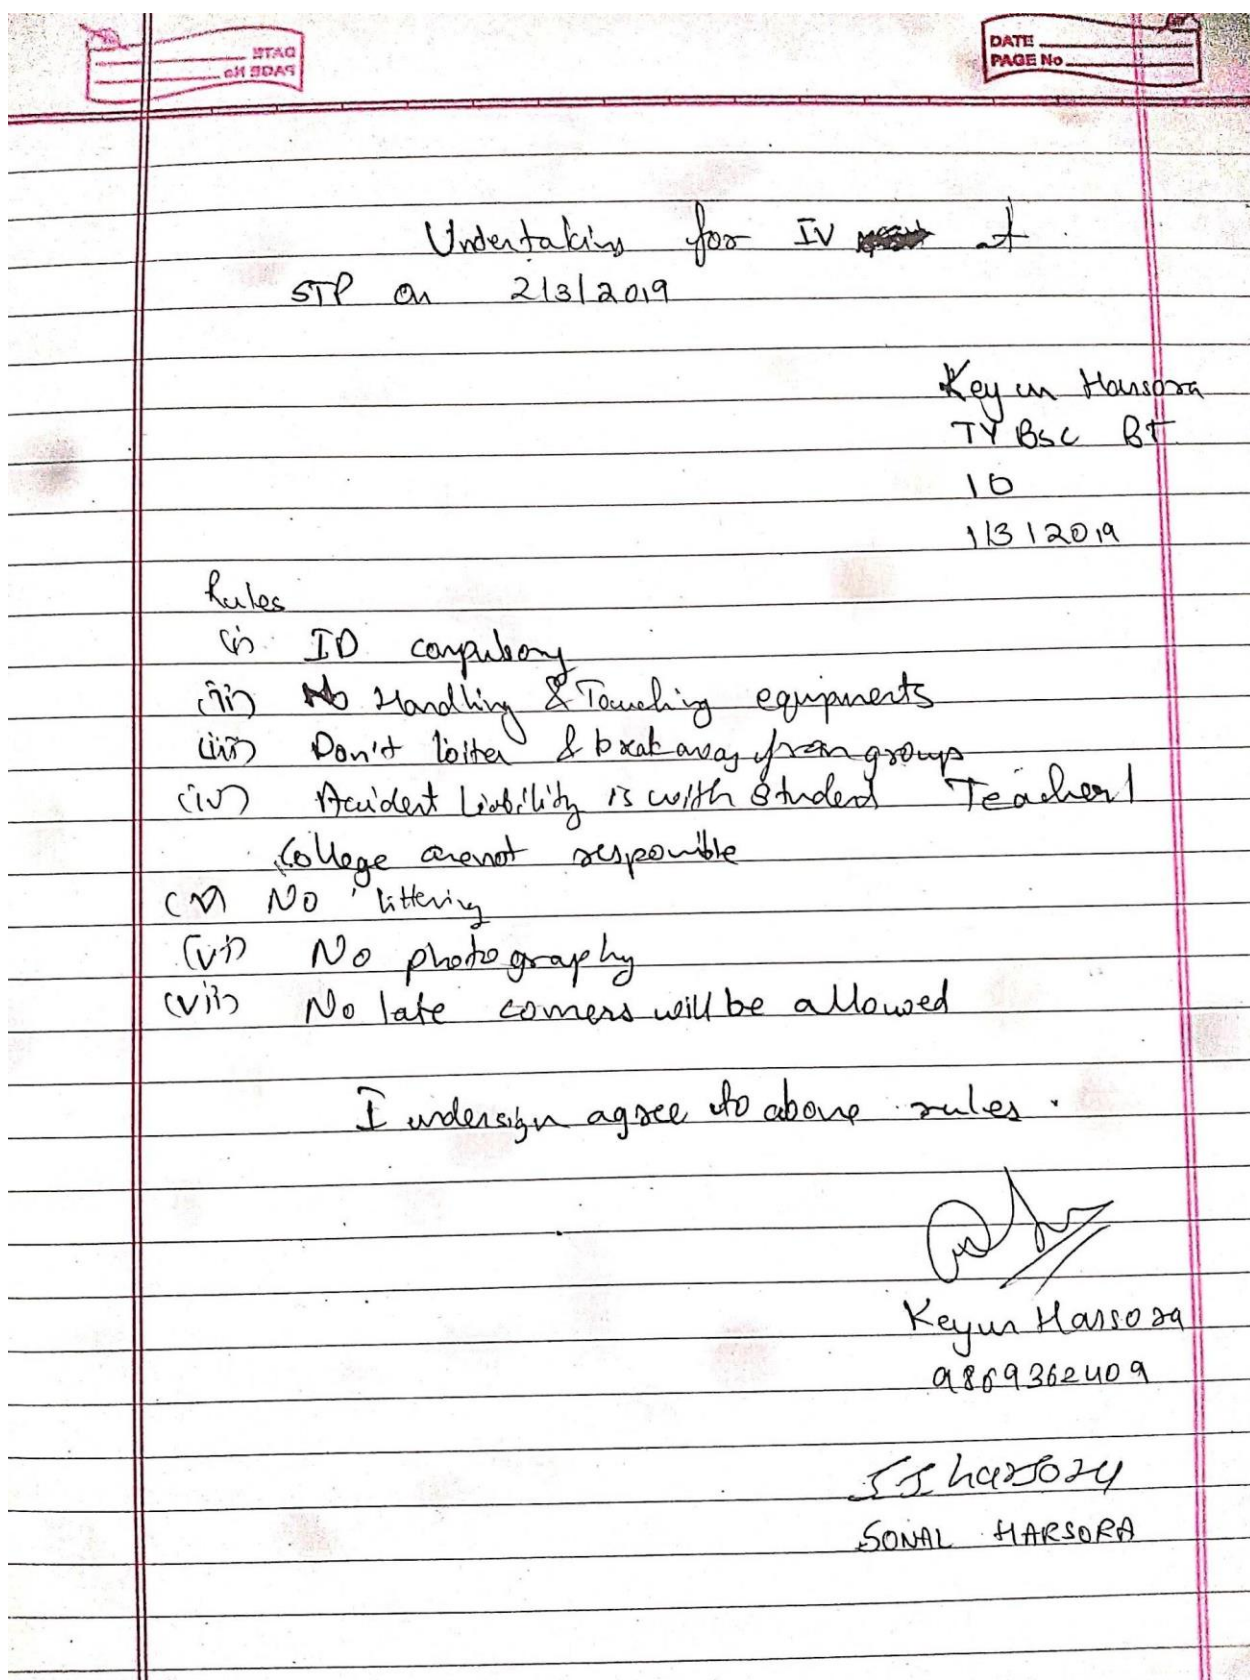 DATE
PAGE No
DATE
PAGE No
Undertaking for IV at
STP on 2/3/2019
Keyur Harsora
TY Bsc BT
10
1/3/2019
Rules
(i) ID compulsory
(ii) No Handling & Touching equipments
(iii) Don't loiter & break away from group
(iv) Accident Liability is with student Teacher/
College are not responsible
(v) No littering
(vi) No photography
(vii) No late comers will be allowed
I undersign agree to above rules.
Keyur Harsora
9869362409
S J harsora
SONAL HARSORA